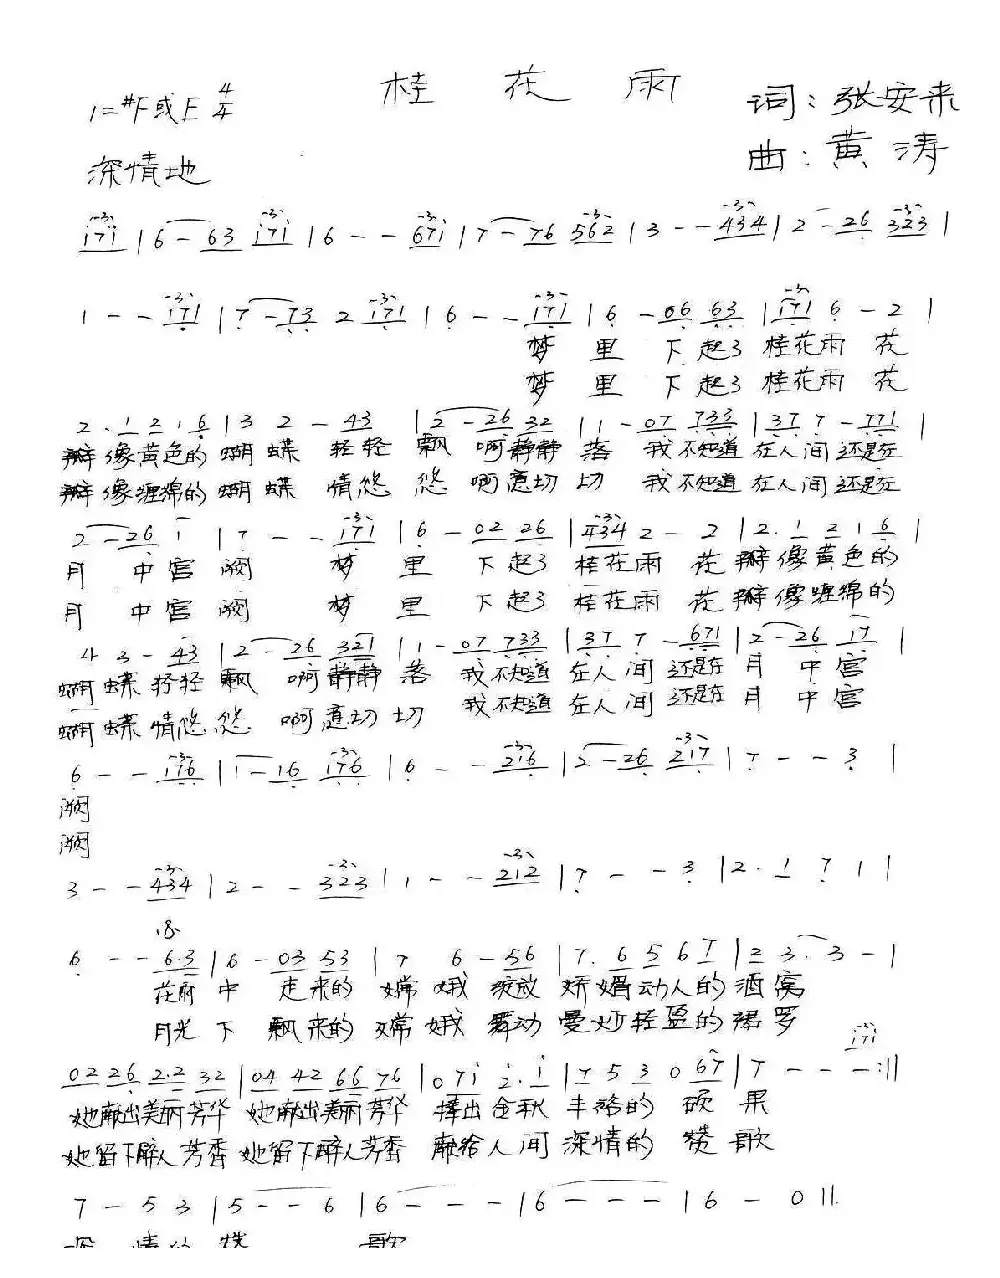 桂 花 雨
1=#F或E 4/4
词：张安来
曲：黄涛
深情地
1 7 1 | 6 - 6 3 1 7 1 | 6 - - 6 7 1 | 7 - 7 6 5 6 2 | 3 - - 4 3 4 | 2 - 2 6 3 2 3 |
1 - - 1 7 1 | 7 - 7 3 2 1 7 1 | 6 - - 1 7 1 | 6 - 0 6 6 3 | 1 7 1 6 - 2 |
梦 里 下 起了 桂花雨 花
梦 里 下 起了 桂花雨 花
2 . 1 2 1 6 | 3 2 - 4 3 | 2 - 2 6 3 2 | 1 - 0 7 7 3 3 | 3 7 7 - 7 7 1 |
瓣像黄色的 蝴蝶 轻轻 飘 啊静静 落 我不知道 在人间 还是在
瓣像缠绵的 蝴蝶 情悠 悠 啊意切 切 我不知道 在人间 还是在
2 - 2 6 1 | 7 - - 1 7 1 | 6 - 0 2 2 6 | 4 3 4 2 - 2 | 2 . 1 2 1 6 |
月 中宫 阙 梦 里 下 起了 桂花雨 花 瓣像黄色的
月 中宫 阙 梦 里 下 起了 桂花雨 花 瓣像缠绵的
4 3 - 4 3 | 2 - 2 6 3 2 1 | 1 - 0 7 7 3 3 | 3 7 7 - 6 7 1 | 2 - 2 6 1 7 |
蝴蝶 轻轻 飘 啊静静 落 我不知道 在人间 还是在 月 中宫
蝴蝶 情悠 悠 啊意切 切 我不知道 在人间 还是在 月 中宫
6 - - 1 7 6 | 1 - 1 6 1 7 6 | 6 - - 2 1 6 | 2 - 2 6 2 1 7 | 7 - - 3 |
阙
阙
3 - - 4 3 4 | 2 - - 3 2 3 | 1 - - 2 1 2 | 7 - - 3 | 2 . 1 7 1 |
6 - - 6 . 3 | 6 - 0 3 5 3 | 7 6 - 5 6 | 7 . 6 5 6 7 | 2 3 . 3 - |
花雨 中 走来的 嫦 娥 绽放 娇媚动人的 酒窝
月光 下 飘来的 嫦 娥 舞动 曼妙轻盈的 裙罗
0 2 2 6 2 . 2 3 2 | 0 4 4 2 6 6 7 6 | 0 7 1 2 . 1 | 7 5 3 0 6 7 | 7 - - - 1 7 1 :||
她献出美丽芳华 她献出美丽芳华 捧出金秋 丰硕的 硕 果
她留下醉人芳香 她留下醉人芳香 献给人间 深情的 赞 歌
7 - 5 3 | 5 - - 6 | 6 - - - | 6 - - - | 6 - 0 ||
深 情的 赞 歌